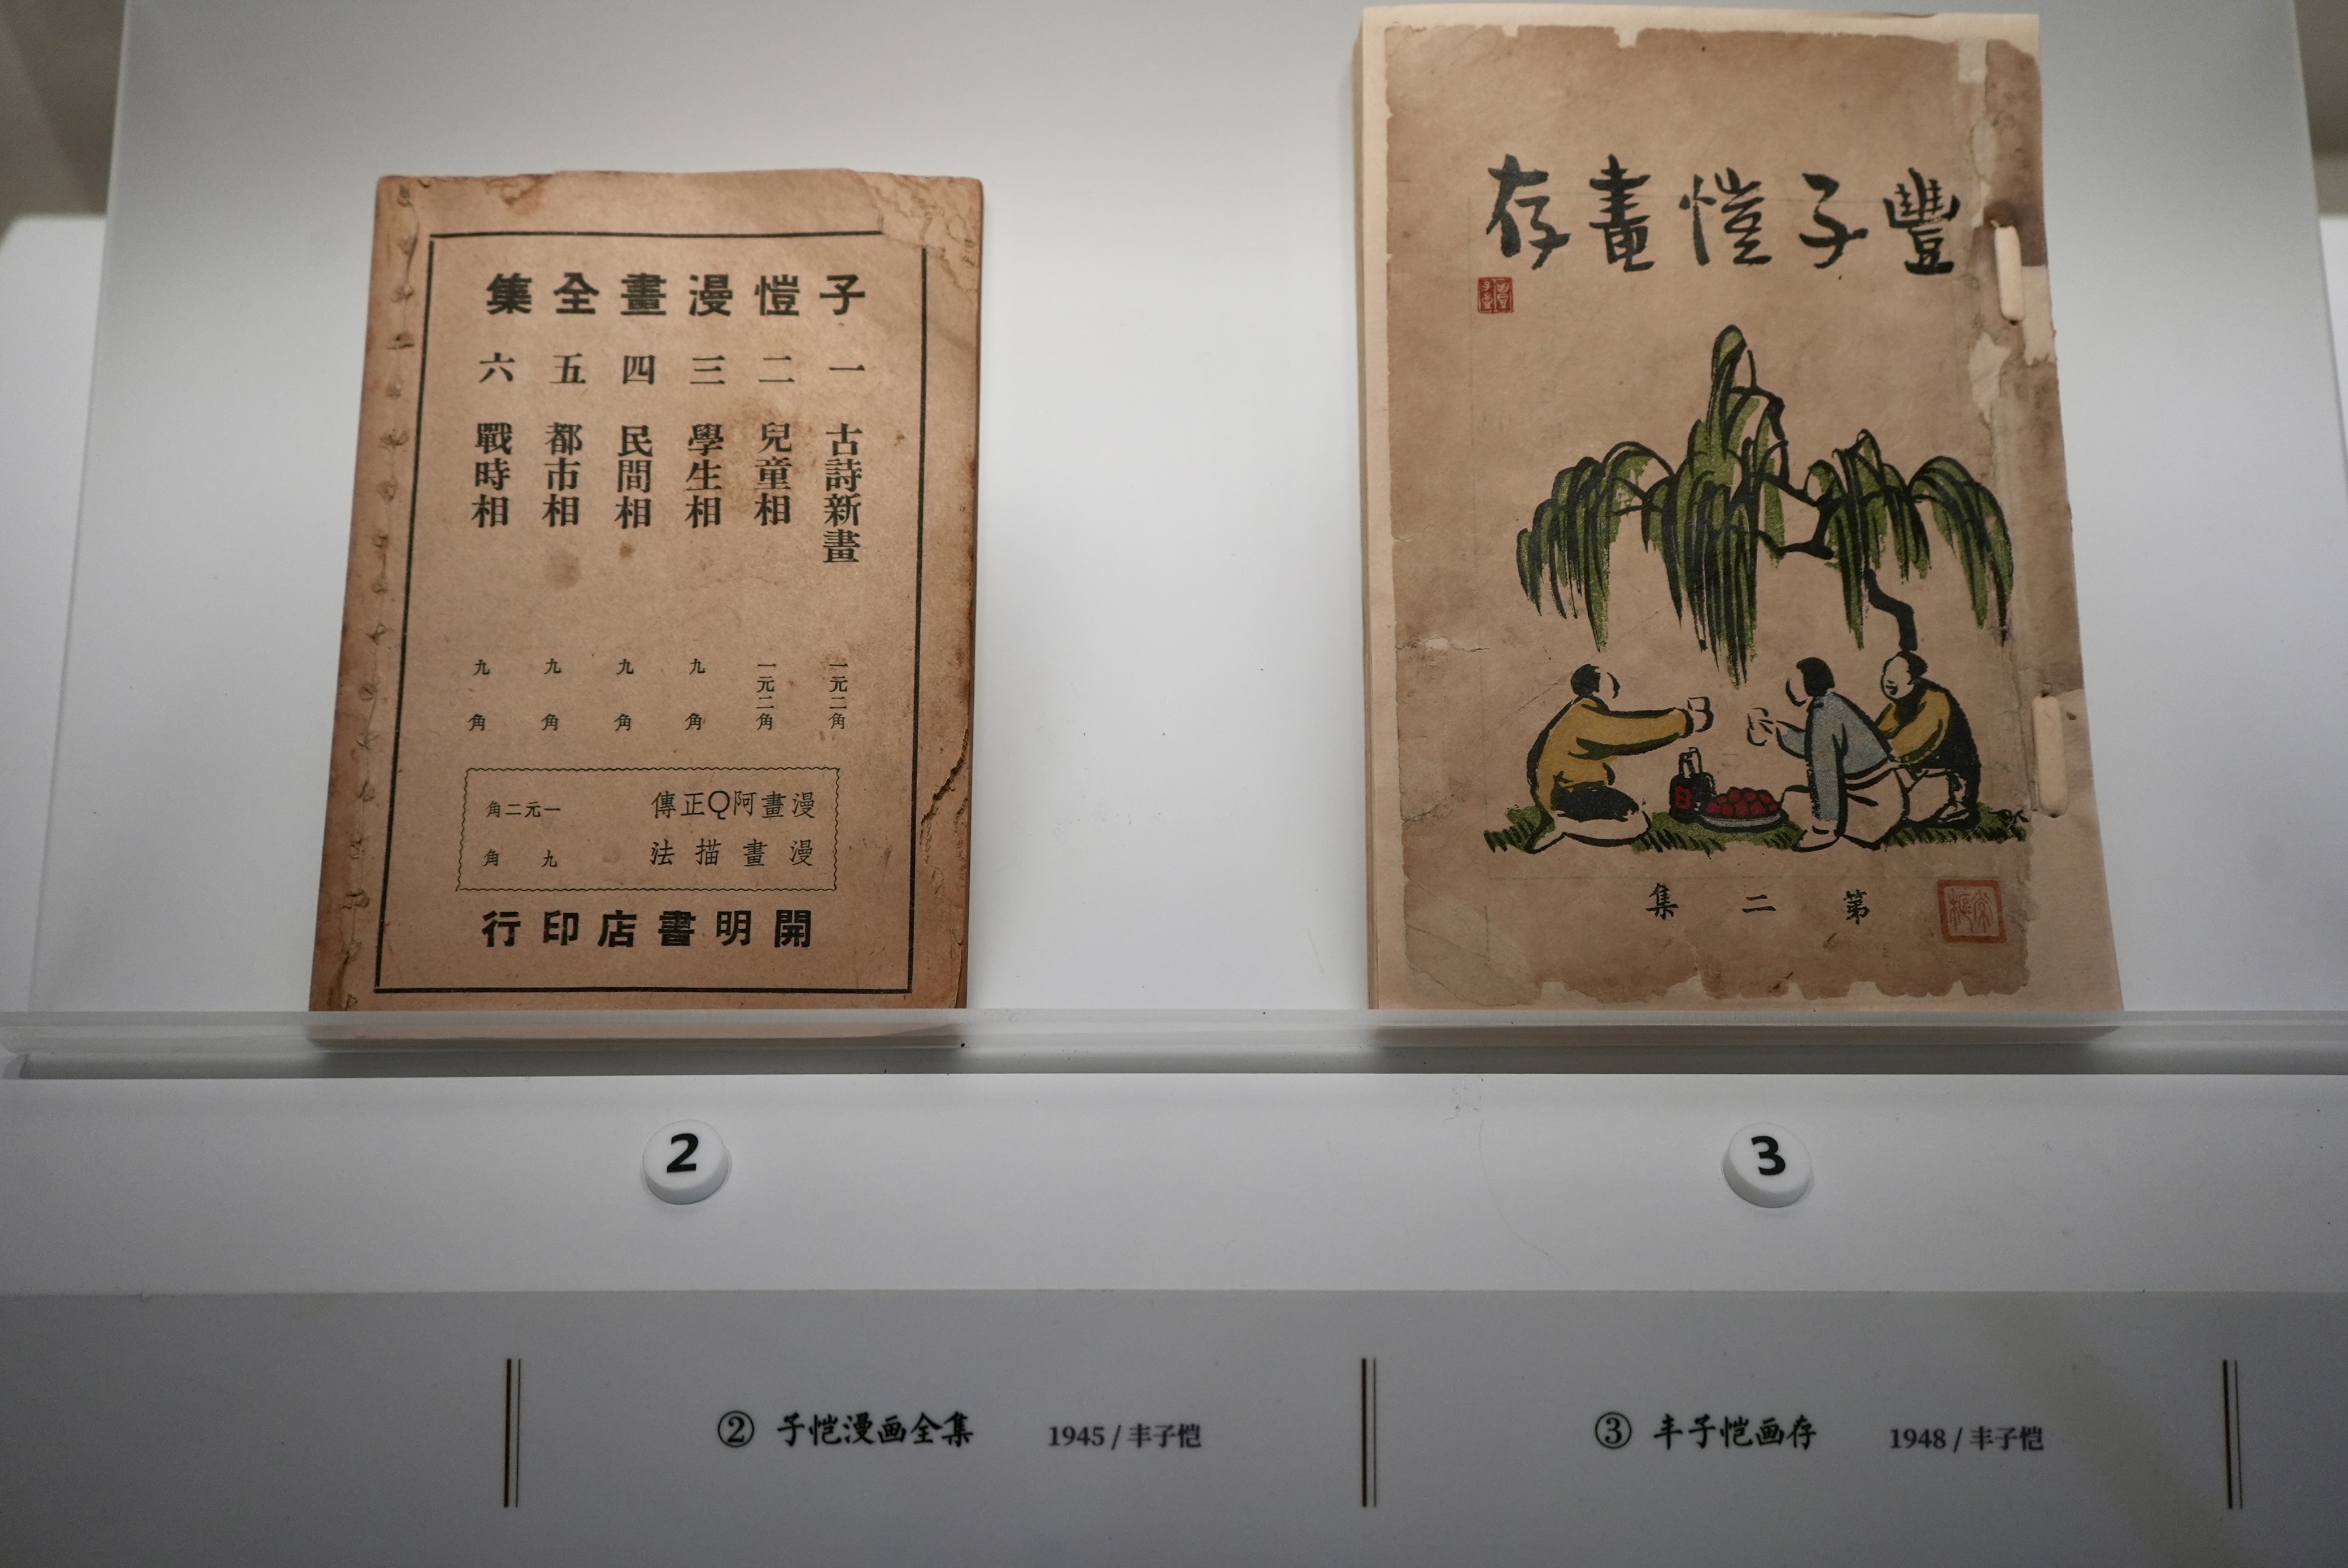 子愷漫畫全集
一 古詩新畫 一元二角
二 兒童相 一元二角
三 學生相 九角
四 民間相 九角
五 都市相 九角
六 戰時相 九角
漫畫阿Q正傳 一元二角
漫畫描法 九角
開明書店印行
豐子愷畫存
第二集
2
3
② 子恺漫画全集 1945 / 丰子恺
③ 丰子恺画存 1948 / 丰子恺